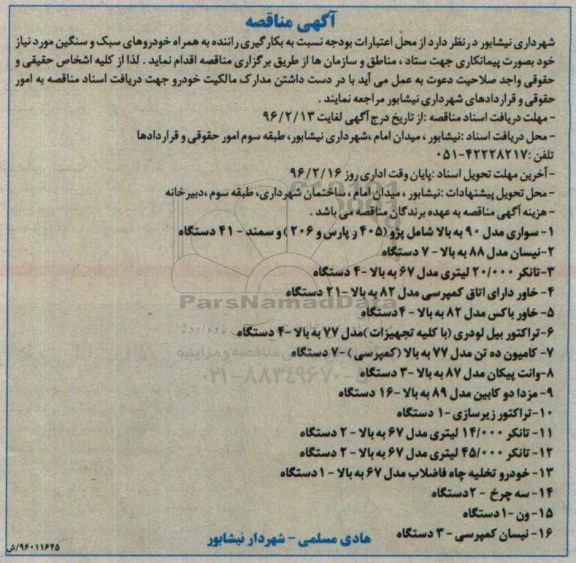 آگهی مناقصه
شهرداری نیشابور درنظر دارد از محل اعتبارات بودجه نسبت به بکارگیری راننده به همراه خودروهای سبک و سنگین مورد نیاز
خود بصورت پیمانکاری جهت ستاد ، مناطق و سازمان ها از طریق برگزاری مناقصه اقدام نماید . لذا از کلیه اشخاص حقیقی و
حقوقی واجد صلاحیت دعوت به عمل می آید با در دست داشتن مدارک مالکیت خودرو جهت دریافت اسناد مناقصه به امور
حقوقی و قراردادهای شهرداری نیشابور مراجعه نمایند .
- مهلت دریافت اسناد مناقصه :از تاریخ درج آگهی لغایت ۹۶/۲/۱۳
- محل دریافت اسناد :نیشابور ، میدان امام ،شهرداری نیشابور، طبقه سوم امور حقوقی و قراردادها
تلفن :۴۲۲۲۸۲۱۷-۰۵۱
- آخرین مهلت تحویل اسناد :پایان وقت اداری روز ۹۶/۲/۱۶
- محل تحویل پیشنهادات :نیشابور ، میدان امام ، ساختمان شهرداری، طبقه سوم ،دبیرخانه
- هزینه آگهی مناقصه به عهده برندگان مناقصه می باشد .
۱- سواری مدل ۹۰ به بالا شامل پژو (۴۰۵ و پارس و ۲۰۶ ) و سمند - ۴۱ دستگاه
۲-نیسان مدل ۸۸ به بالا - ۷ دستگاه
۳-تانکر ۲۰/۰۰۰ لیتری مدل ۶۷ به بالا -۴ دستگاه
۴- خاور دارای اتاق کمپرسی مدل ۸۲ به بالا -۲۱ دستگاه
ParsNamadData
۵- خاور باکس مدل ۸۲ به بالا - ۴ دستگاه
۶-تراکتور بیل لودری (با کلیه تجهیزات )مدل ۷۷ به بالا -۴ دستگاه
۷- کامیون ده تن مدل ۷۷ به بالا (کمپرسی )-۷ دستگاه
۰۲۱-۸۸۳۴۹۶۷۰
۸-وانت پیکان مدل ۸۷ به بالا -۳ دستگاه
۹- مزدا دو کابین مدل ۸۹ به بالا -۱۶ دستگاه
۱۰-تراکتور زیرسازی -۱ دستگاه
۱۱- تانکر ۱۴/۰۰۰ لیتری مدل ۶۷ به بالا - ۲ دستگاه
۱۲- تانکر ۴۵/۰۰۰ لیتری مدل ۶۷ به بالا - ۲ دستگاه
۱۳- خودرو تخلیه چاه فاضلاب مدل ۶۷ به بالا - ۱ دستگاه
۱۴- سه چرخ - ۲ دستگاه
۱۵- ون -۱ دستگاه
۱۶- نیسان کمپرسی - ۳ دستگاه
هادی مسلمی - شهردار نیشابور
۹۶۰۱۱۶۴۵/ش